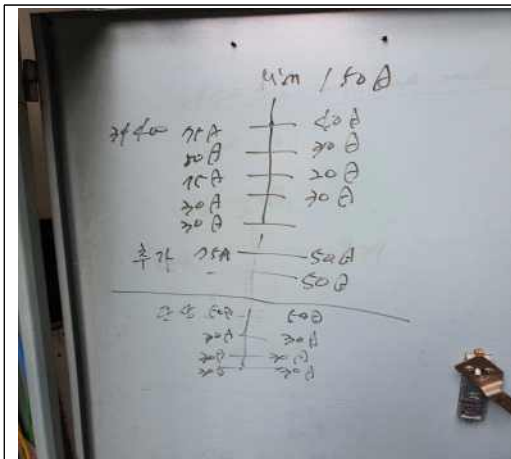 Main 150A
75A 40A
50A 30A
75A 20A
30A 30A
30A
추가 75A 50A
50A
단상 50A 50A
30A 30A
30A 30A
30A 30A